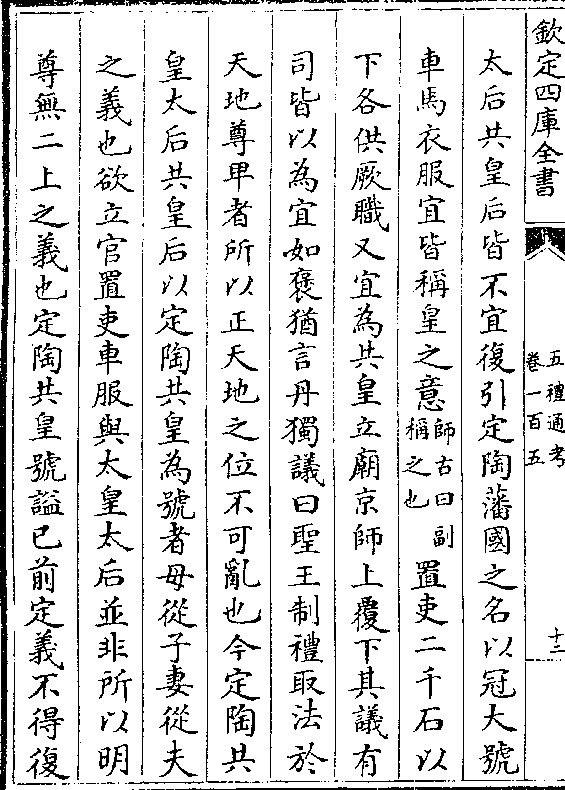 欽定四庫全書
五禮通考
卷一百五
十三
太后共皇后皆不宜復引定陶藩國之名以冠大號
車馬衣服宜皆稱皇之意師古曰副
稱之也置吏二千石以
下各供厥職又宜為共皇立廟京師上覆下其議有
司皆以為宜如褒猶言丹獨議曰聖王制禮取法於
天地尊卑者所以正天地之位不可亂也今定陶共
皇太后共皇后以定陶共皇為號者母從子妻從夫
之義也欲立官置吏車服與太皇太后並非所以明
尊無二上之義也定陶共皇號謚已前定義不得復